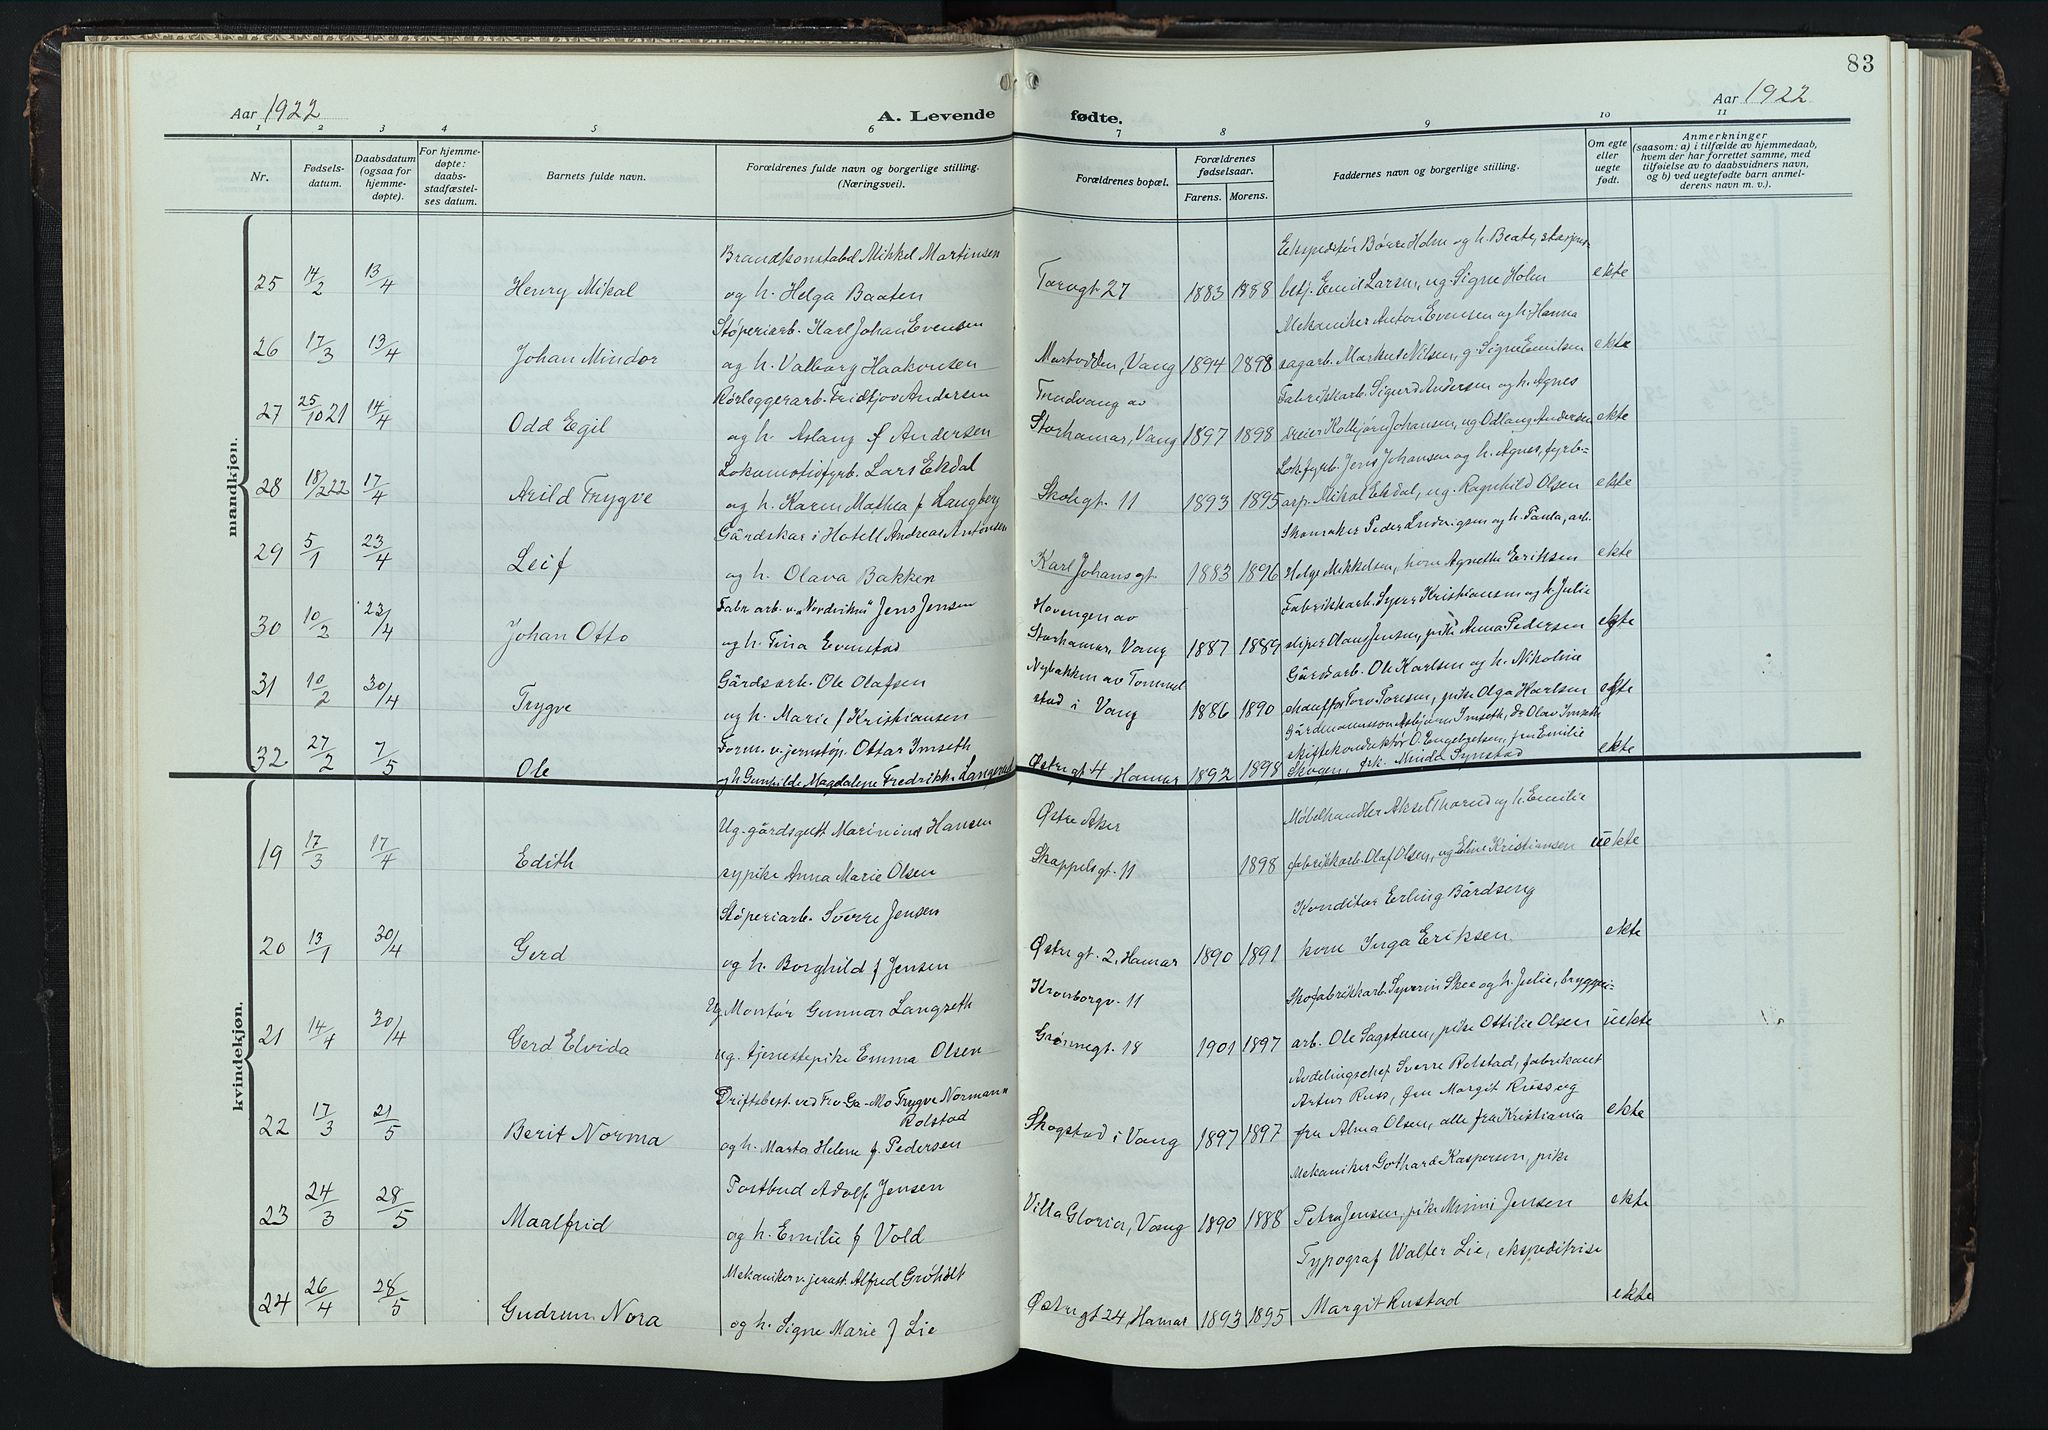 83
Aar 1922
A. Levende fødte.
Aar 1922
1 2 3 4 5 6 7 8 9 10 11
Nr.
Fødsels-
datum.
Daabsdatum
(ogsaa for
hjemme-
døpte).
For hjemme-
døpte:
daabs-
stadfæstel-
ses datum.
Barnets fulde navn.
Forældrenes fulde navn og borgerlige stilling.
(Næringsvei).
Forældrenes bopæl.
Forældrenes
fødselsaar.
Farens. Morens.
Faddernes navn og borgerlige stilling.
Om egte
eller
uegte
født.
Anmerkninger
(saasom: a) i tilfælde av hjemmedaab,
hvem der har forrettet samme, med
tilføielse av to daabsvidners navn,
og b) ved uegtefødte barn anmel-
derens navn m. v.).
mandkjøn.
Brandkonstabel Mikkel Martinsen
Ekspeditør Børre Holm og h. Beate,
25 14/2 13/4 Henry Mikal og h. Helga Baaten Torvgt 27 1883 1888 betj. Emil Larsen, ug. Signe Holm ekte
Støperiarb. Karl Johan Evensen
Mekaniker Anton Evensen og h. Hanna
26 17/3 13/4 Johan Mindor og h. Valborg Haakonsen Martodden, Vang 1894 1898 sagarb. Markus Nilsen, g. Signe Emilsen ekte
Rørleggerarb. Fridtjov Andersen
Trudvang av
Fabrikkarb. Sigurd Andersen og h. Agnes
27 25/10 21 14/4 Odd Egil og h. Aslaug f Andersen Storhamar, Vang 1897 1898 dreier Kolbjørn Johansen, ug Odlaug Andersen ekte
Lokomotivfyrb. Lars Ekdal
Lokfyrb. Jens Johansen og h. Agnes, fyrb-
28 18/2 22 17/4 Arild Trygve og h. Karen Mathea f Langberg Skolegt. 11 1893 1895 asp. Mikal Ekdal, ug. Ragnhild Olsen ekte
Gårdskar i Hotell Andreas Antonsen
Skomaker Peder Ludvigsen og h. Paula, arb.
29 5/1 23/4 Leif og h. Olava Bakken Karl Johansgt. 1883 1896 Helge Mikkelsen, kone Agnethe Eriksen ekte
Fabr. arb. v. "Nordviken" Jens Jensen
Hovengen av
Fabrikkarb. Syver Kristiansen og h. Julie
30 10/2 23/4 Johan Otto og h. Tina Evenstad Storhamar, Vang 1887 1889 sliper Olaus Jensen, pike Anna Pedersen ekte
Gårdsarb. Ole Olafsen
Nybakken av Tommel
Gårdsarb. Ole Karlsen og h. Nikoline
31 10/2 30/4 Trygve og h. Marie f Kristiansen stad i Vang 1886 1890 chauffør Torv Toresen, pike Olga Karlsen ekte
Gårdmannssøn Asbjørn Imseth, do Olav Imseth
Form. v. jernstøp. Ottar Imseth
skiftekonduktør O. Engebretsen, fru Emilie
32 27/2 7/5 Ole og h Gunhilde Magdalene Fredrikke Langerud Østregt 4 Hamar 1892 1898 Skogen, frk. Minda Synstad ekte
kvindekjøn.
Ug. gårdsgutt Marinius Hansen
Østre Aker
Møbelhandler Aksel Thorud og h. Emilie
19 17/3 17/4 Edith sypike Anna Marie Olsen Skappelsgt. 11 1898 fabrikkarb. Olaf Olsen, ug Eline Kristiansen uekte
Støperiarb. Sverre Jensen
Konditor Erling Bårdseng
20 13/1 30/4 Gerd og h. Borghild f Jensen Østregt. 2, Hamar 1890 1891 kone Inga Eriksen ekte
Ug. Montør Gunnar Langseth
Kronborgv. 11
Skofabrikkarb. Syverin Skee og h. Julie, bryggeri-
21 14/4 30/4 Gerd Elvida ug. tjenestepike Emma Olsen Grønnegt. 18 1901 1897 arb. Ole Sagstuen, pike Ottilie Olsen uekte
Avdelingschef Sverre Rolstad, fabrikant
Driftsbest. ved Fro-Ga-Mo Trygve Normann
Artur Russ, frn Margit Russ og
Rolstad
22 17/3 21/5 Berit Norma og h. Marta Helene f. Pedersen Skogstad i Vang 1897 1897 fru Alma Olsen, alle fra Kristiania ekte
Postbud Adolf Jensen
Mekaniker Gothard Kaspersen, pike
23 24/3 28/5 Maalfrid og h. Emilie f Vold Villa Gloria, Vang 1890 1888 Petra Jensen, pike Mimi Jensen ekte
Mekaniker v. jernst. Alfred Grøholt
Typograf Walter Lie, ekspeditrise
24 26/4 28/5 Gudrun Nora og h. Signe Marie f Lie Østregt 24, Hamar 1893 1895 Margit Rustad ekte